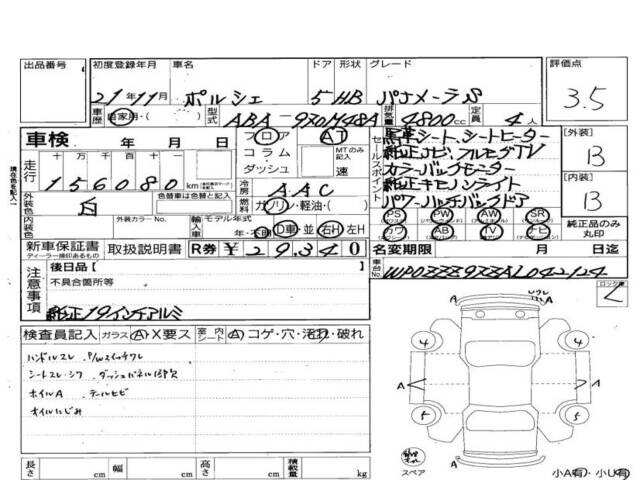 出品番号 初度登録年月 車名 ドア 形状 グレード 評価点
21年11月 ポルシェ 5 HB パナメーラS 3.5
車歴 自家用・( ) 型式 ABA-970M48A 排気量 4800cc 定員 4人
車検 年 月 日 フロア AT
コラム・ダッシュ MTのみ記入 速
走行 十万 万 千 百 十
156080 km
冷房 AAC
外装色 白 色替車は色替と記入
燃料 ガソリン・軽油・( )
内装色 外装カラーNo. 内装カラーNo.
輸入車 モデル年式 年・不明 D車・並 右H 左H
セールスポイント
黒革シート、シートヒーター
純正ナビ、フルセグTV
カラーバックモニター
純正キセノンライト
パワーバックドア
PS PW AW SR
カワ AB TV ナビ
純正品のみ丸印
外装 B
内装 B
新車保証書 取扱説明書 R券 ¥29,340
ディーラー捺印あるもの
名変期限 月 日迄
車台No. WP0ZZZ97ZAL042124
注意事項 後日品【 】
不具合箇所等
純正19インチアルミ
検査員記入 ガラス A・X要ス 室内シート A コゲ・穴・汚れ・破れ
ハンドルスレ P/Wスイッチワレ
シートスレ・シワ ダッシュパネル1部欠
ホイルA テールヒビ
オイルにじみ
A
4 4
A A
5 5
A
スペア
小A有・小U有
長さ cm 幅 cm 高さ cm 積載量 kg